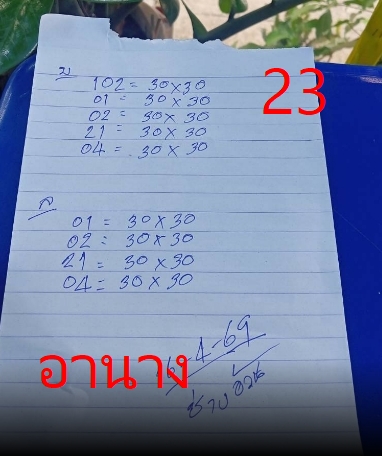 บ
23
102 = 30×30
01 = 30×30
02 = 30×30
21 = 30×30
04 = 30×30
ล
01 = 30×30
02 = 30×30
21 = 30×30
04 = 30×30
-4-69
อานาง